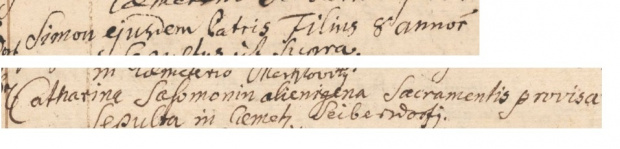 Simon ejusdem Patris Filius 8 annor
in Cæmeterio
Catharina Salomonin alienigena Sacramentis provisa
sepulta in Cemet. Seibersdorf.